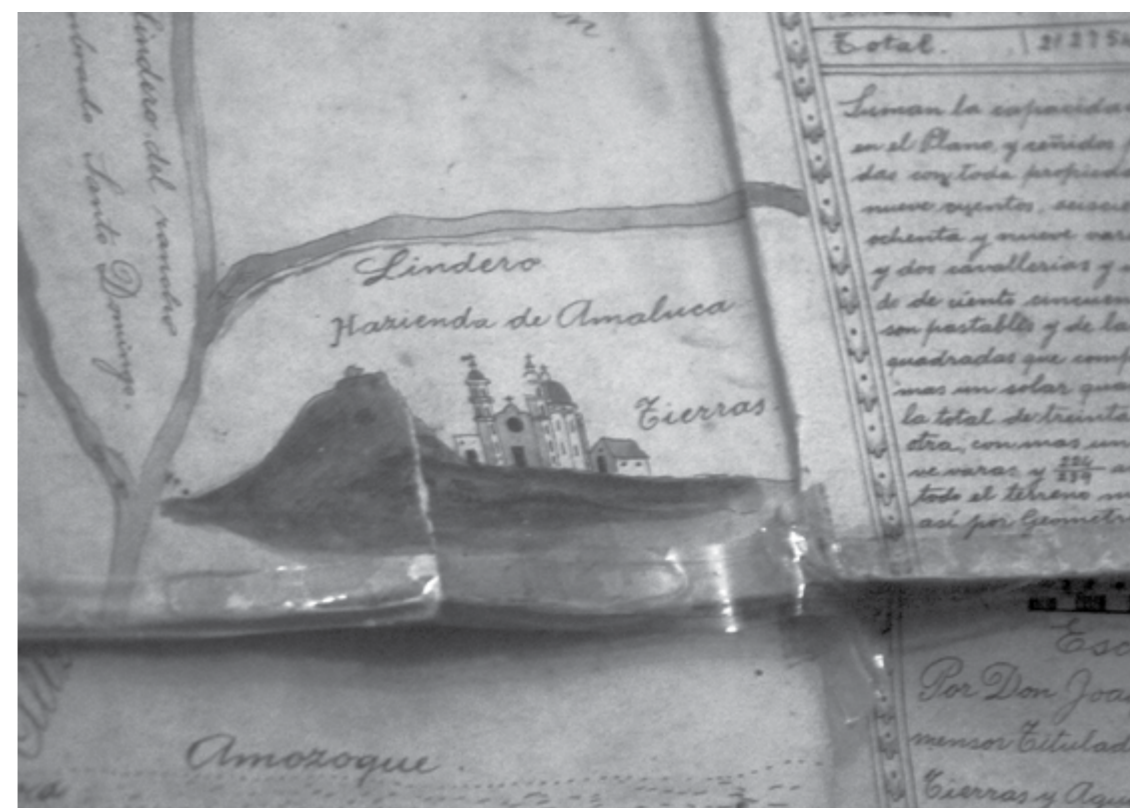 Lindero del rancho
Santo Domingo.
Lindero
Hazienda de Amaluca
Tierras
Amozoque
Total.
Suman la capacidad
en el Plano, y ceñidos
das con toda propieda
nueve cuentos, seiscie
ochenta y nueve var
y dos cavallerias y
de de ciento cincuen
son pastables y de la
quadradas que comp
mas un solar qua
la total de treinta
otra, con mas un
ve varas y
todo el terreno
así por Geometr
Esc
Por Don Joa
mensor Titulad
Tierras y Agu